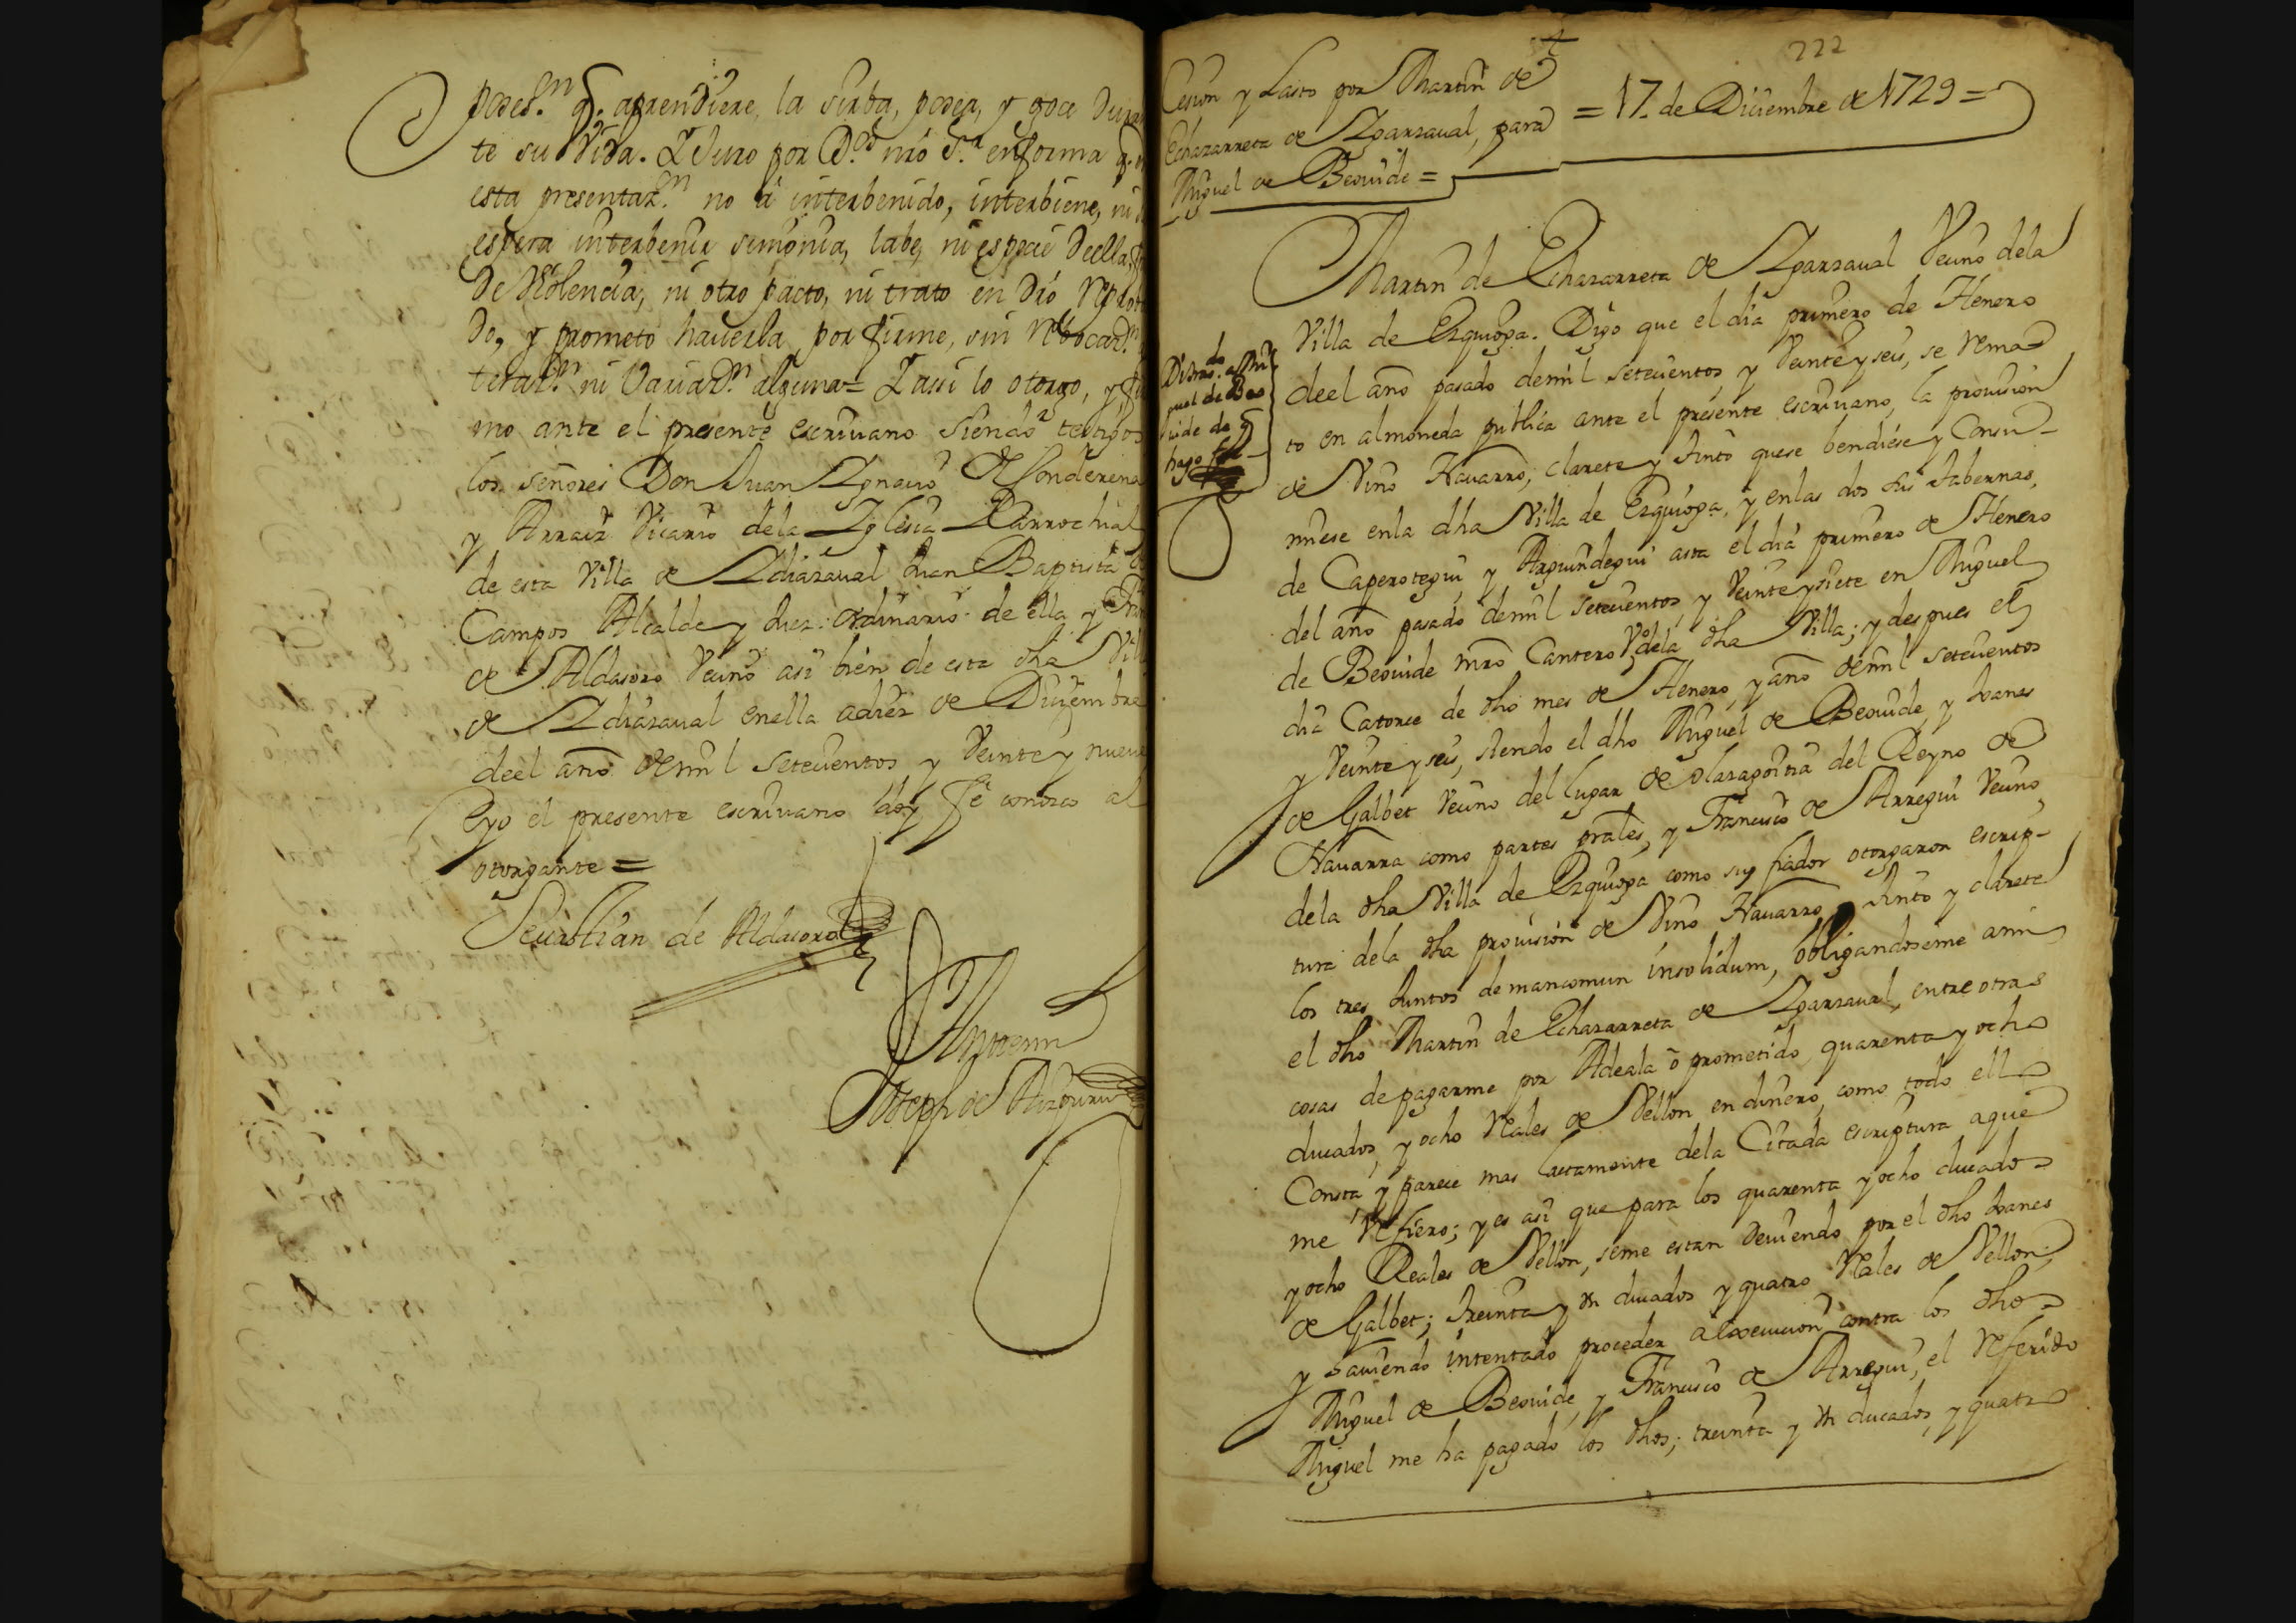 poses.on q.e aprendiere, la sirba, posea, y goce Duran
te su Vida. Y Juro por D.s nrō S.r en forma q.e en
esta presentaz.on no á interbenido, interbiene, ni se
espera interbenir simonia, labe, ni especie de ella,
De Violencia, ni otro pacto, ni trato en Dró reproba
do, y prometo haverla por firme, sin rebocaz.on
teraz.on ni Variaz.on alguna = Y assi lo otorgo, y fir
mo ante el presente escrivano Siendo testigos
los señores Don Juan Ygnacio de
y Arraiz Vicario dela Yglesia Parrochial
de esta Villa de Ydiazaval Juan Baptista de
Campos Alcalde y Juez ordinario de ella y Fran
de Aldasoro Vecino asi bien de esta dha Villa
de Ydiazaval en ella a diez de Diziembre
deel año de mil Setecientos y Veinte y nueve
E yo el presente escrivano doy fe conozco al
otorgante =
Sevastian de Aldasoro
Ante mi
Joseph de Aizpuru
222
Cesion y Lasto por Martin de
Echazarreta de Ygarzaval, para
Miguel de Beovide =
= 17 de Diciembre de 1729 =
Martin de Echazarreta de Ygarzaval Vecino dela
Villa de Ezquioga. Digo que el dia primero de Henero
deel año pasado de mil setecientos y Veinte y seis, se rema
to en almoneda publica ante el presente escrivano, la provision
de Vino Navarro, clarete y tinto que se bendiese y Consu-
miese en la dha Villa de Ezquioga, y en las dos sus tabernas,
de Caperotegui y Arguindegui asta el dia primero de Henero
del año pasado de mil setecientos y Veinte y siete en Miguel
de Beovide mrō Cantero Vº dela dha Villa; y despues el
dia Catorce de dho mes de Henero, y año de mil setecientos
y Veinte y seis, siendo el dho Miguel de Beovide y Juanes
de Galbet Vecino del lugar de Olazagoitia del Reyno de
Navarra como partes prāles, y Francisco de Arregui Vecino
dela dha Villa de Ezquioga como su fiador otorgaron escrip-
tura dela dha provision de Vino Navarro tinto y clarete
los tres Juntos de mancomun insolidum, obligandoseme a mi
el dho Martin de Echazarreta de Ygarzaval, entre otras
cosas de pagarme por Adeala ō prometido, quarenta y ocho
ducados, y ocho reales de Vellon en dinero, como todo ello
Consta y parece mas lactamente dela Citada escriptura a que
me refiero; y es asi que para los quarenta y ocho ducados
y ocho Reales de Vellon, seme estan deviendo por el dho Juanes
de Galbet; treinta y un ducados y quatro reales de Vellon;
y haviendo intentado proceder a la execucion contra los dhos
Miguel de Beovide, y Francisco de Arregui, el referido
Miguel me ha pagado los dhos; treinta y un ducados, y quatro
Di tras.do a Mi
guel de Beo
vide de
hago fee